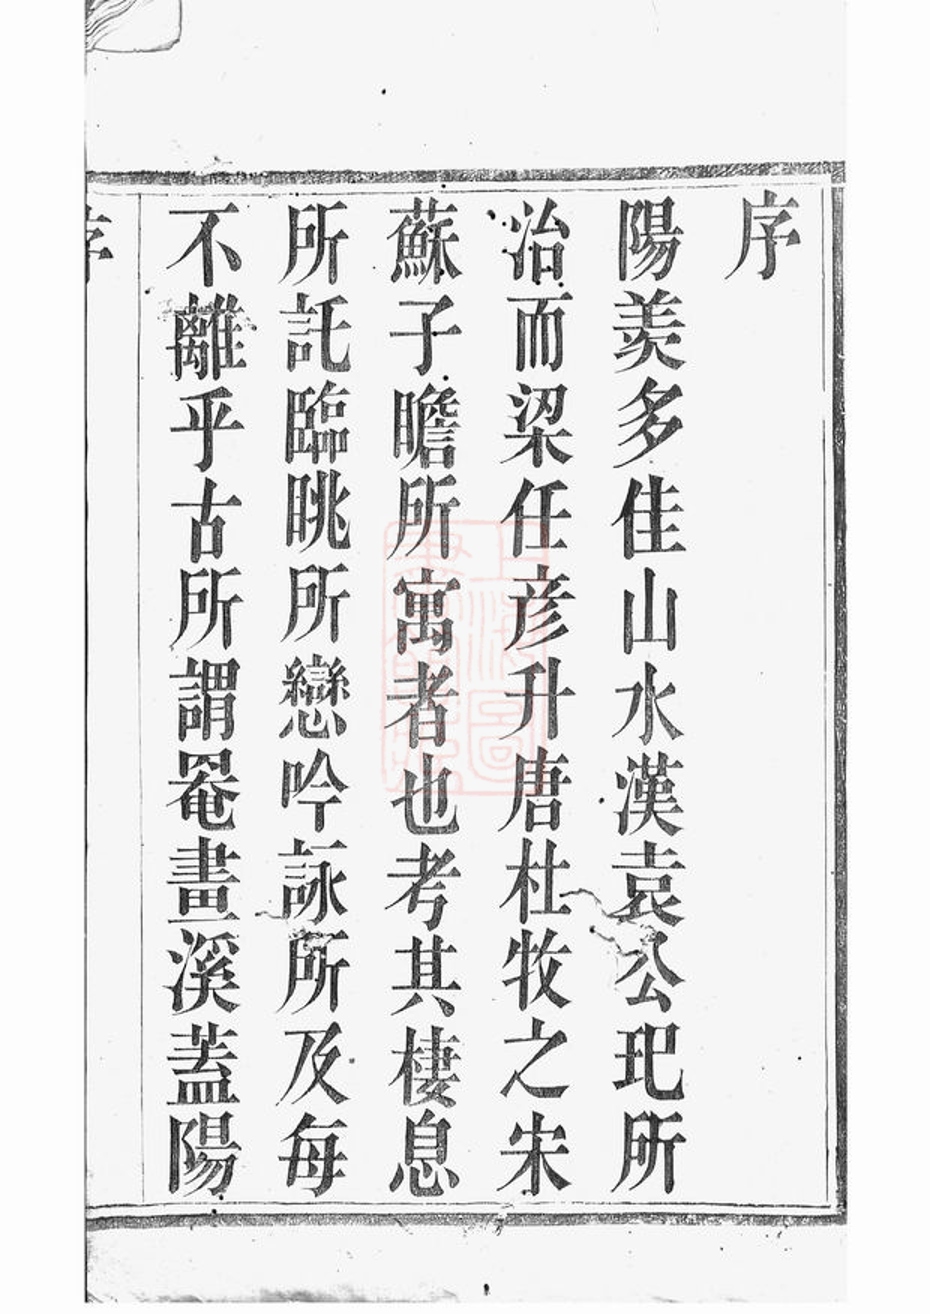 序
陽羨多佳山水漢袁公玘所
治而梁任彥升唐杜牧之宋
蘇子瞻所寓者也考其棲息
所託臨眺所戀吟詠所及每
不離乎古所謂罨畫溪蓋陽
序
上海圖